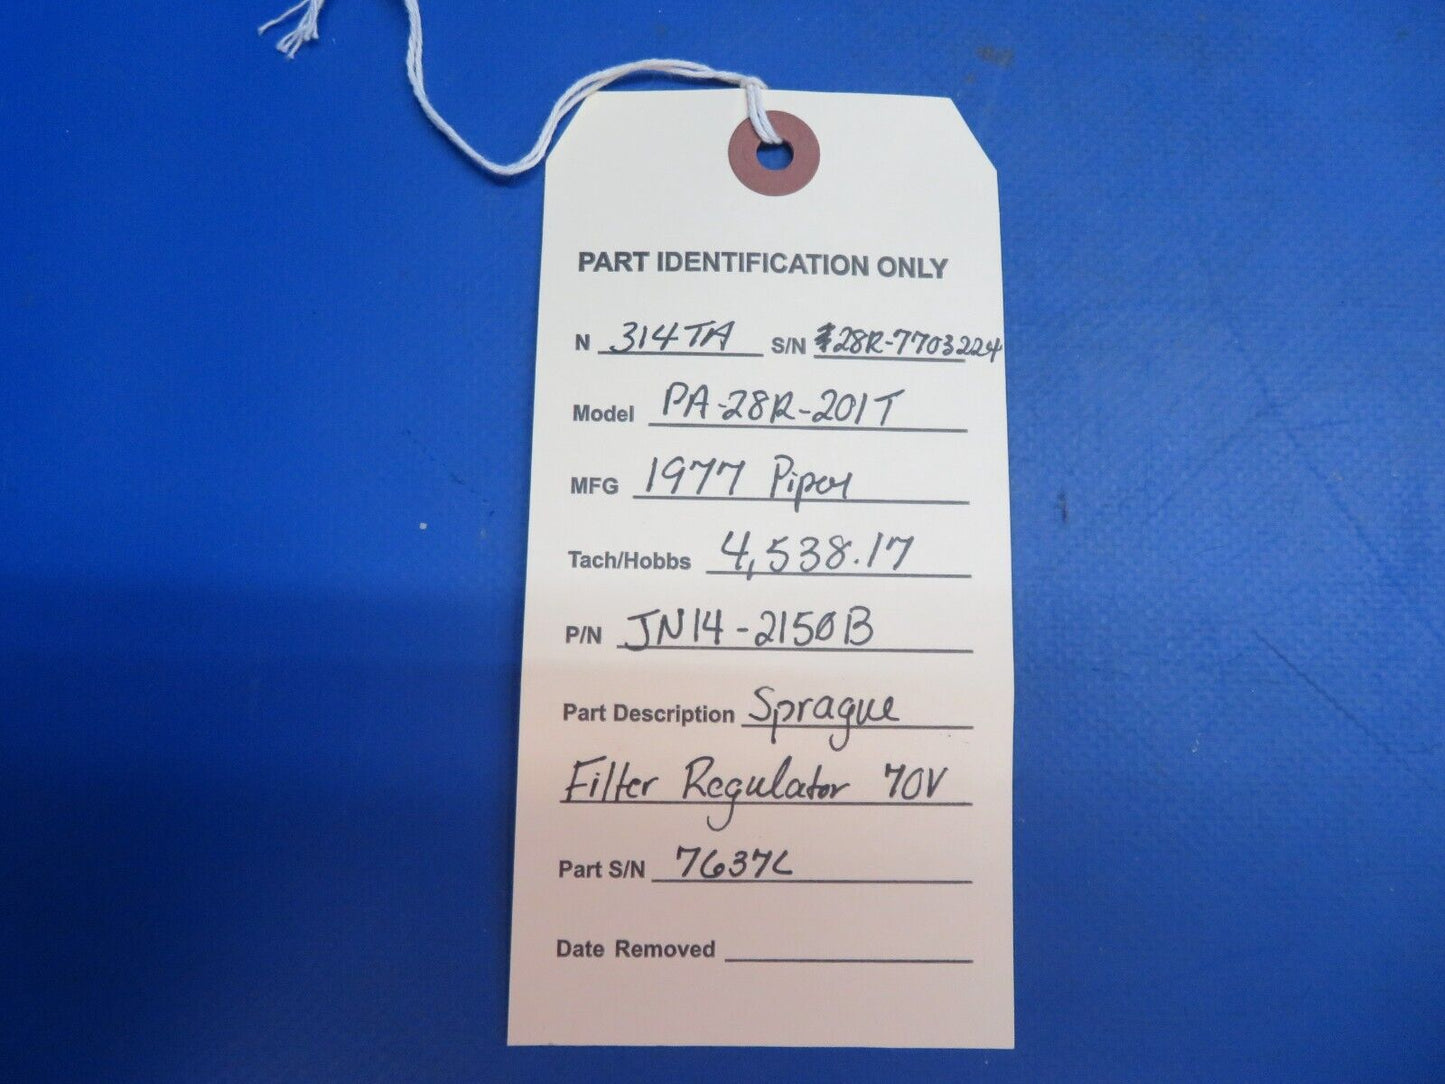 PART IDENTIFICATION ONLY
N 314TA S/N 28R-7703224
Model PA-28R-201T
MFG 1977 Piper
Tach/Hobbs 4,538.17
P/N JN14-2150B
Part Description Sprague
Filter Regulator 70V
Part S/N 7637C
Date Removed